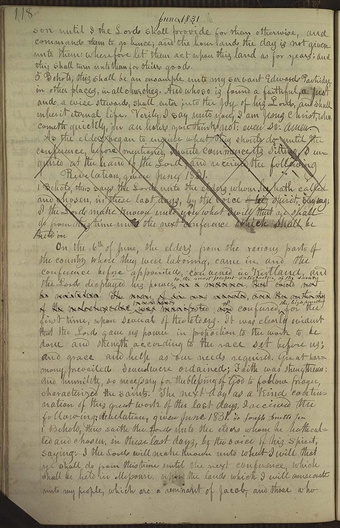 118
June 1831
son until I the Lord shall provide for them otherwise, and
command them to go hence; and the hour and the day is not given
unto them: wherefore let them act upon this land as for years; and
this shall turn unto them for their good.
5 Behold, this shall be an example unto my servant Edward Partridge,
in other places, in all churches. And whoso is found a faithful, a just
and a wise steward, shall enter into the joy of his Lord, and shall
inherit eternal life. Verily, I say unto you, I am Jesus Christ, who
cometh quickly, in an hour you think not: even so. Amen.
As the elders began to inquire what they should do until the
conference, before
quired at the hand of the Lord and received the following
Revelation, given June 1831.
1 Behold, thus says the Lord unto the elders whom he hath called
and chosen, in these last days, by the voice of his spirit, saying,
I the Lord make known unto you what I will that ye shall
do from this time until the next conference which shall be
held in
On the 6th of June, the elders from the various parts of
the country where they were laboring, came in and the
conference before appointed, convened in Kirtland, and
the Lord displayed his power,
to the most perfect satisfaction of the saints
conferred for the
first time, upon several of the elders. It was clearly evident
that the Lord gave us power in proportion to the work to be
done and strength according to the race set before us;
and grace and help as our needs required. Great har-
mony prevailed several were ordained; faith was strengthened;
and humility, so necessary for the blessing of God to follow prayer,
characterized the saints. The next day as a kind contin-
uation of this great work of the last days, I received the
following Revelation, given June 1831
1 Behold, thus saith the Lord unto the elders whom he hath call-
ed and chosen, in these last days, by the voice of his Spirit,
saying, I the Lord will make known unto you what I will that
ye shall do from this time until the next conference, which
shall be held in Missouri, upon the land which I will consecrate
unto my people, which are a remnant of Jacob, and those who